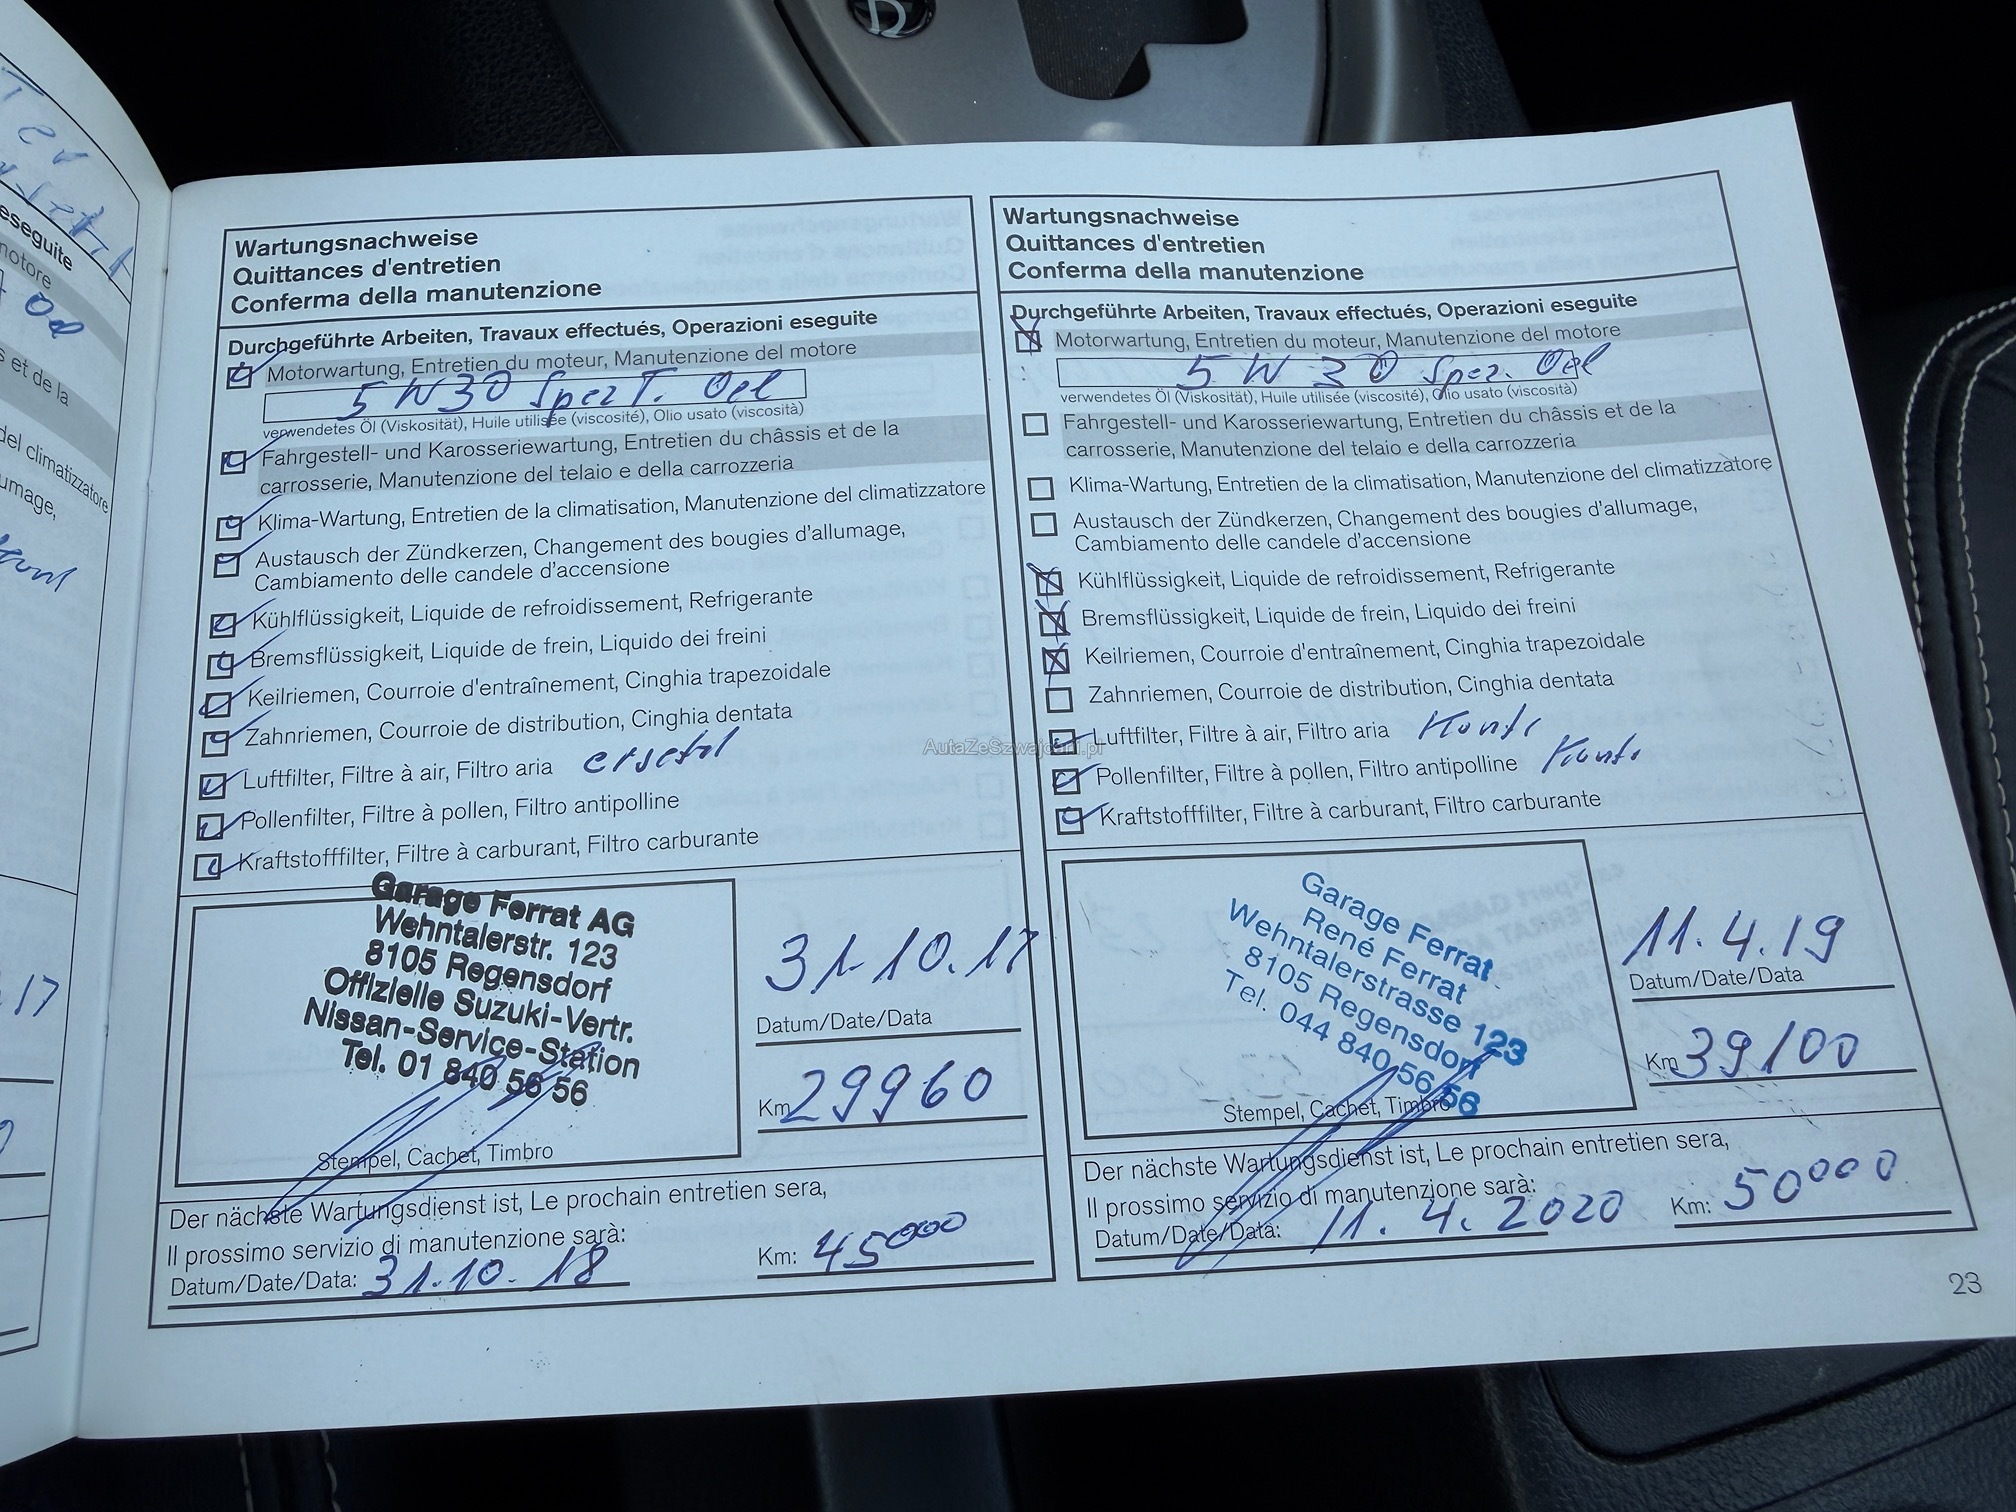 Tev
eseguite
motore
Oel
s et de la
del climatizzatore
umage,
17
Wartungsnachweise
Quittances d'entretien
Conferma della manutenzione
Durchgeführte Arbeiten, Travaux effectués, Operazioni eseguite
Motorwartung, Entretien du moteur, Manutenzione del motore
5 W 30 Spez T. Oel
verwendetes Öl (Viskosität), Huile utilisée (viscosité), Olio usato (viscosità)
Fahrgestell- und Karosseriewartung, Entretien du châssis et de la
carrosserie, Manutenzione del telaio e della carrozzeria
Klima-Wartung, Entretien de la climatisation, Manutenzione del climatizzatore
Austausch der Zündkerzen, Changement des bougies d'allumage,
Cambiamento delle candele d'accensione
Kühlflüssigkeit, Liquide de refroidissement, Refrigerante
Bremsflüssigkeit, Liquide de frein, Liquido dei freini
Keilriemen, Courroie d'entraînement, Cinghia trapezoidale
Zahnriemen, Courroie de distribution, Cinghia dentata
Luftfilter, Filtre à air, Filtro aria ersetzt
Pollenfilter, Filtre à pollen, Filtro antipolline
Kraftstofffilter, Filtre à carburant, Filtro carburante
Garage Ferrat AG
Wehntalerstr. 123
8105 Regensdorf
Offizielle Suzuki-Vertr.
Nissan-Service-Station
Tel. 01 840 56 56
Stempel, Cachet, Timbro
31.10.17
Datum/Date/Data
Km 29960
Der nächste Wartungsdienst ist, Le prochain entretien sera,
Il prossimo servizio di manutenzione sarà:
Datum/Date/Data: 31.10.18 Km: 45000
Wartungsnachweise
Quittances d'entretien
Conferma della manutenzione
Durchgeführte Arbeiten, Travaux effectués, Operazioni eseguite
Motorwartung, Entretien du moteur, Manutenzione del motore
5 W 30 Spez. Oel
verwendetes Öl (Viskosität), Huile utilisée (viscosité), Olio usato (viscosità)
Fahrgestell- und Karosseriewartung, Entretien du châssis et de la
carrosserie, Manutenzione del telaio e della carrozzeria
Klima-Wartung, Entretien de la climatisation, Manutenzione del climatizzatore
Austausch der Zündkerzen, Changement des bougies d'allumage,
Cambiamento delle candele d'accensione
Kühlflüssigkeit, Liquide de refroidissement, Refrigerante
Bremsflüssigkeit, Liquide de frein, Liquido dei freini
Keilriemen, Courroie d'entraînement, Cinghia trapezoidale
Zahnriemen, Courroie de distribution, Cinghia dentata
Luftfilter, Filtre à air, Filtro aria Kontr
Pollenfilter, Filtre à pollen, Filtro antipolline Kontr
Kraftstofffilter, Filtre à carburant, Filtro carburante
Garage Ferrat
René Ferrat
Wehntalerstrasse 123
8105 Regensdorf
Tel. 044 840 56 56
Stempel, Cachet, Timbro
11.4.19
Datum/Date/Data
Km 39100
Der nächste Wartungsdienst ist, Le prochain entretien sera,
Il prossimo servizio di manutenzione sarà:
Datum/Date/Data: 11.4.2020 Km: 50000
23
AutaZeSzwajcarii.pl